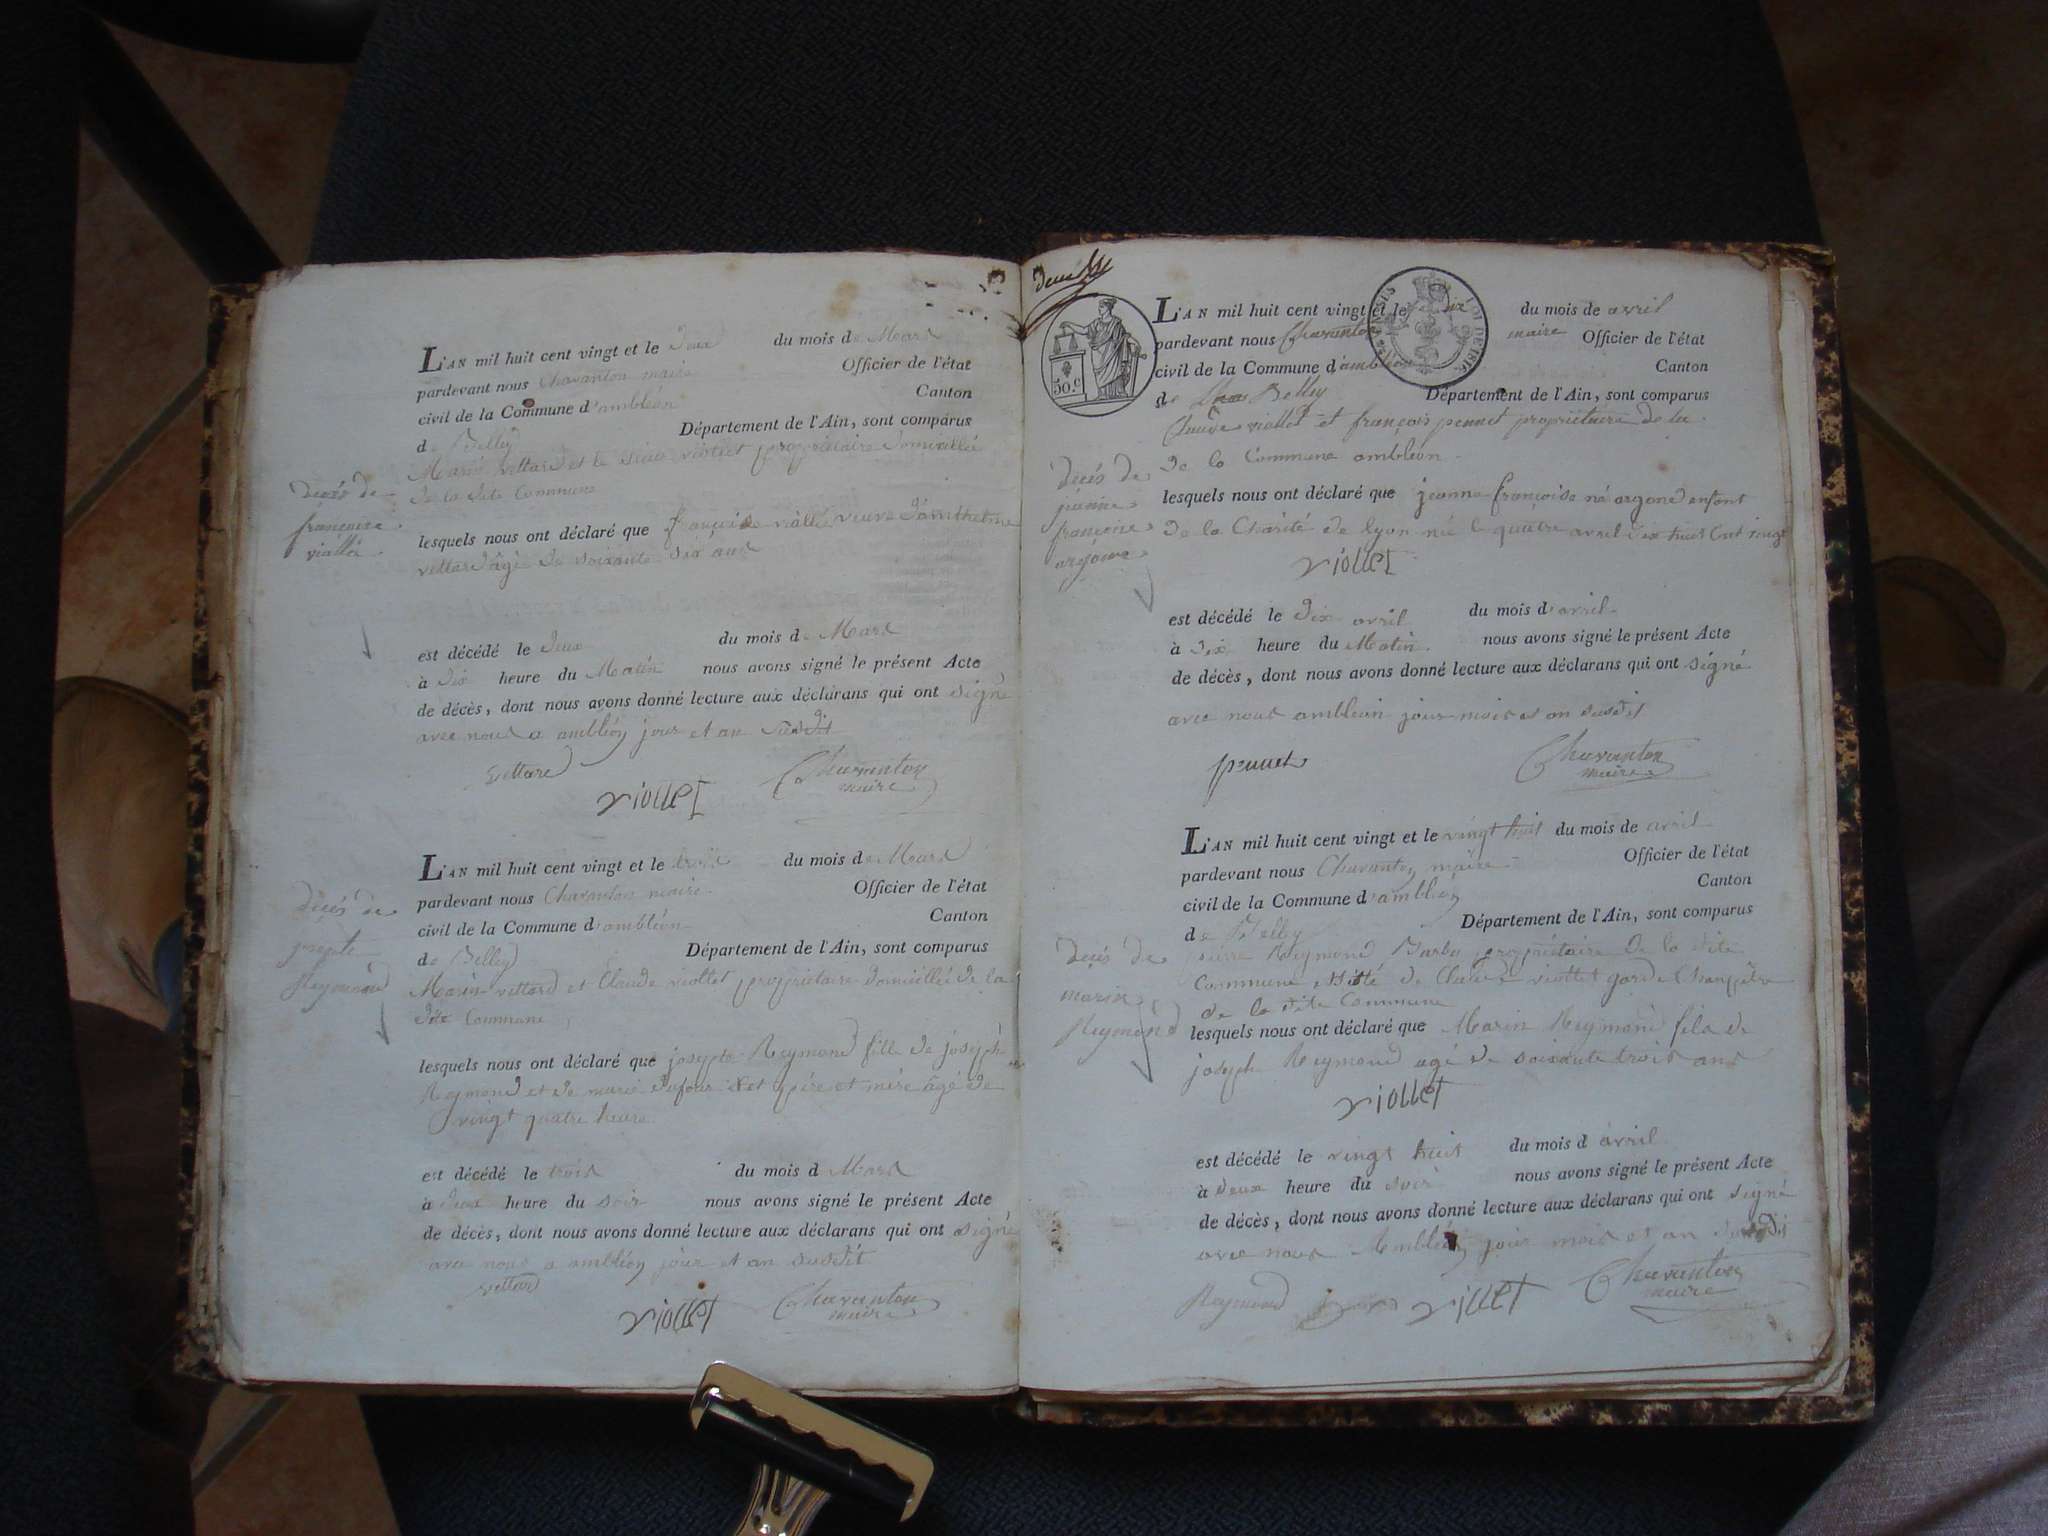 L'AN mil huit cent vingt et le deux du mois de Mars
pardevant nous Chavanton maire Officier de l'état
civil de la Commune d'ambléon Canton
de Belley Département de l'Ain, sont comparus
Marin vettard et le viollet propriétaire domicillée
de la dite Commune
décés de
françoise
viallée
lesquels nous ont déclaré que françoise viallée veuve d'anthelme
vettard âgé de soixante six ans
est décédé le deux du mois de Mars
à dix heure du Matin nous avons signé le présent Acte
de décès, dont nous avons donné lecture aux déclarans qui ont signé
avec nous a ambléon jour et an susdit
vettard
viollet
Chavanton
maire
L'AN mil huit cent vingt et le trois du mois de Mars
pardevant nous Chavanton maire Officier de l'état
civil de la Commune d'ambléon Canton
de Belley Département de l'Ain, sont comparus
Marin vettard et Claude viollet propriétaire domicillée de la
dite Commune
décés de
josepte
Reymond
lesquels nous ont déclaré que josepte Reymond fille de joseph
Reymond et de marie dufour père et mère âgé de
vingt quatre heure
est décédé le trois du mois d Mars
à deux heure du soir nous avons signé le présent Acte
de décès, dont nous avons donné lecture aux déclarans qui ont signé
avec nous a ambléon jour et an susdit
vettard
viollet
Chavanton
maire
50 c
LOI DE 1816
L'AN mil huit cent vingt et le dix du mois de avril
pardevant nous Chavanton maire Officier de l'état
civil de la Commune d'ambléon Canton
de Belley Département de l'Ain, sont comparus
Claude viollet et françois pennet propriétaire de la
de la Commune ambléon
décés de
jeanne
françoise
argone
lesquels nous ont déclaré que jeanne françoise né argone enfant
de la Charité de lyon né le quatre avril dix huit Cent vingt
viollet
est décédé le dix avril du mois d'avril
à dix heure du Matin nous avons signé le présent Acte
de décès, dont nous avons donné lecture aux déclarans qui ont signé
avec nous ambléon jour mois et an susdit
pennet
Chavanton
maire
L'AN mil huit cent vingt et le vingt huit du mois de avril
pardevant nous Chavanton maire Officier de l'état
civil de la Commune d'ambléon Canton
de Belley Département de l'Ain, sont comparus
pierre Reymond propriétaire de la dite
Commune de Claude viollet garde Champêtre
de la dite Commune
décés de
marin
Reymond
lesquels nous ont déclaré que Marin Reymond fils de
joseph Reymond agé de soixante trois ans
viollet
est décédé le vingt huit du mois d avril
à deux heure du soir nous avons signé le présent Acte
de décès, dont nous avons donné lecture aux déclarans qui ont signé
avec nous Ambléon jour mois et an susdit
Reymond
viollet
Chavanton
maire